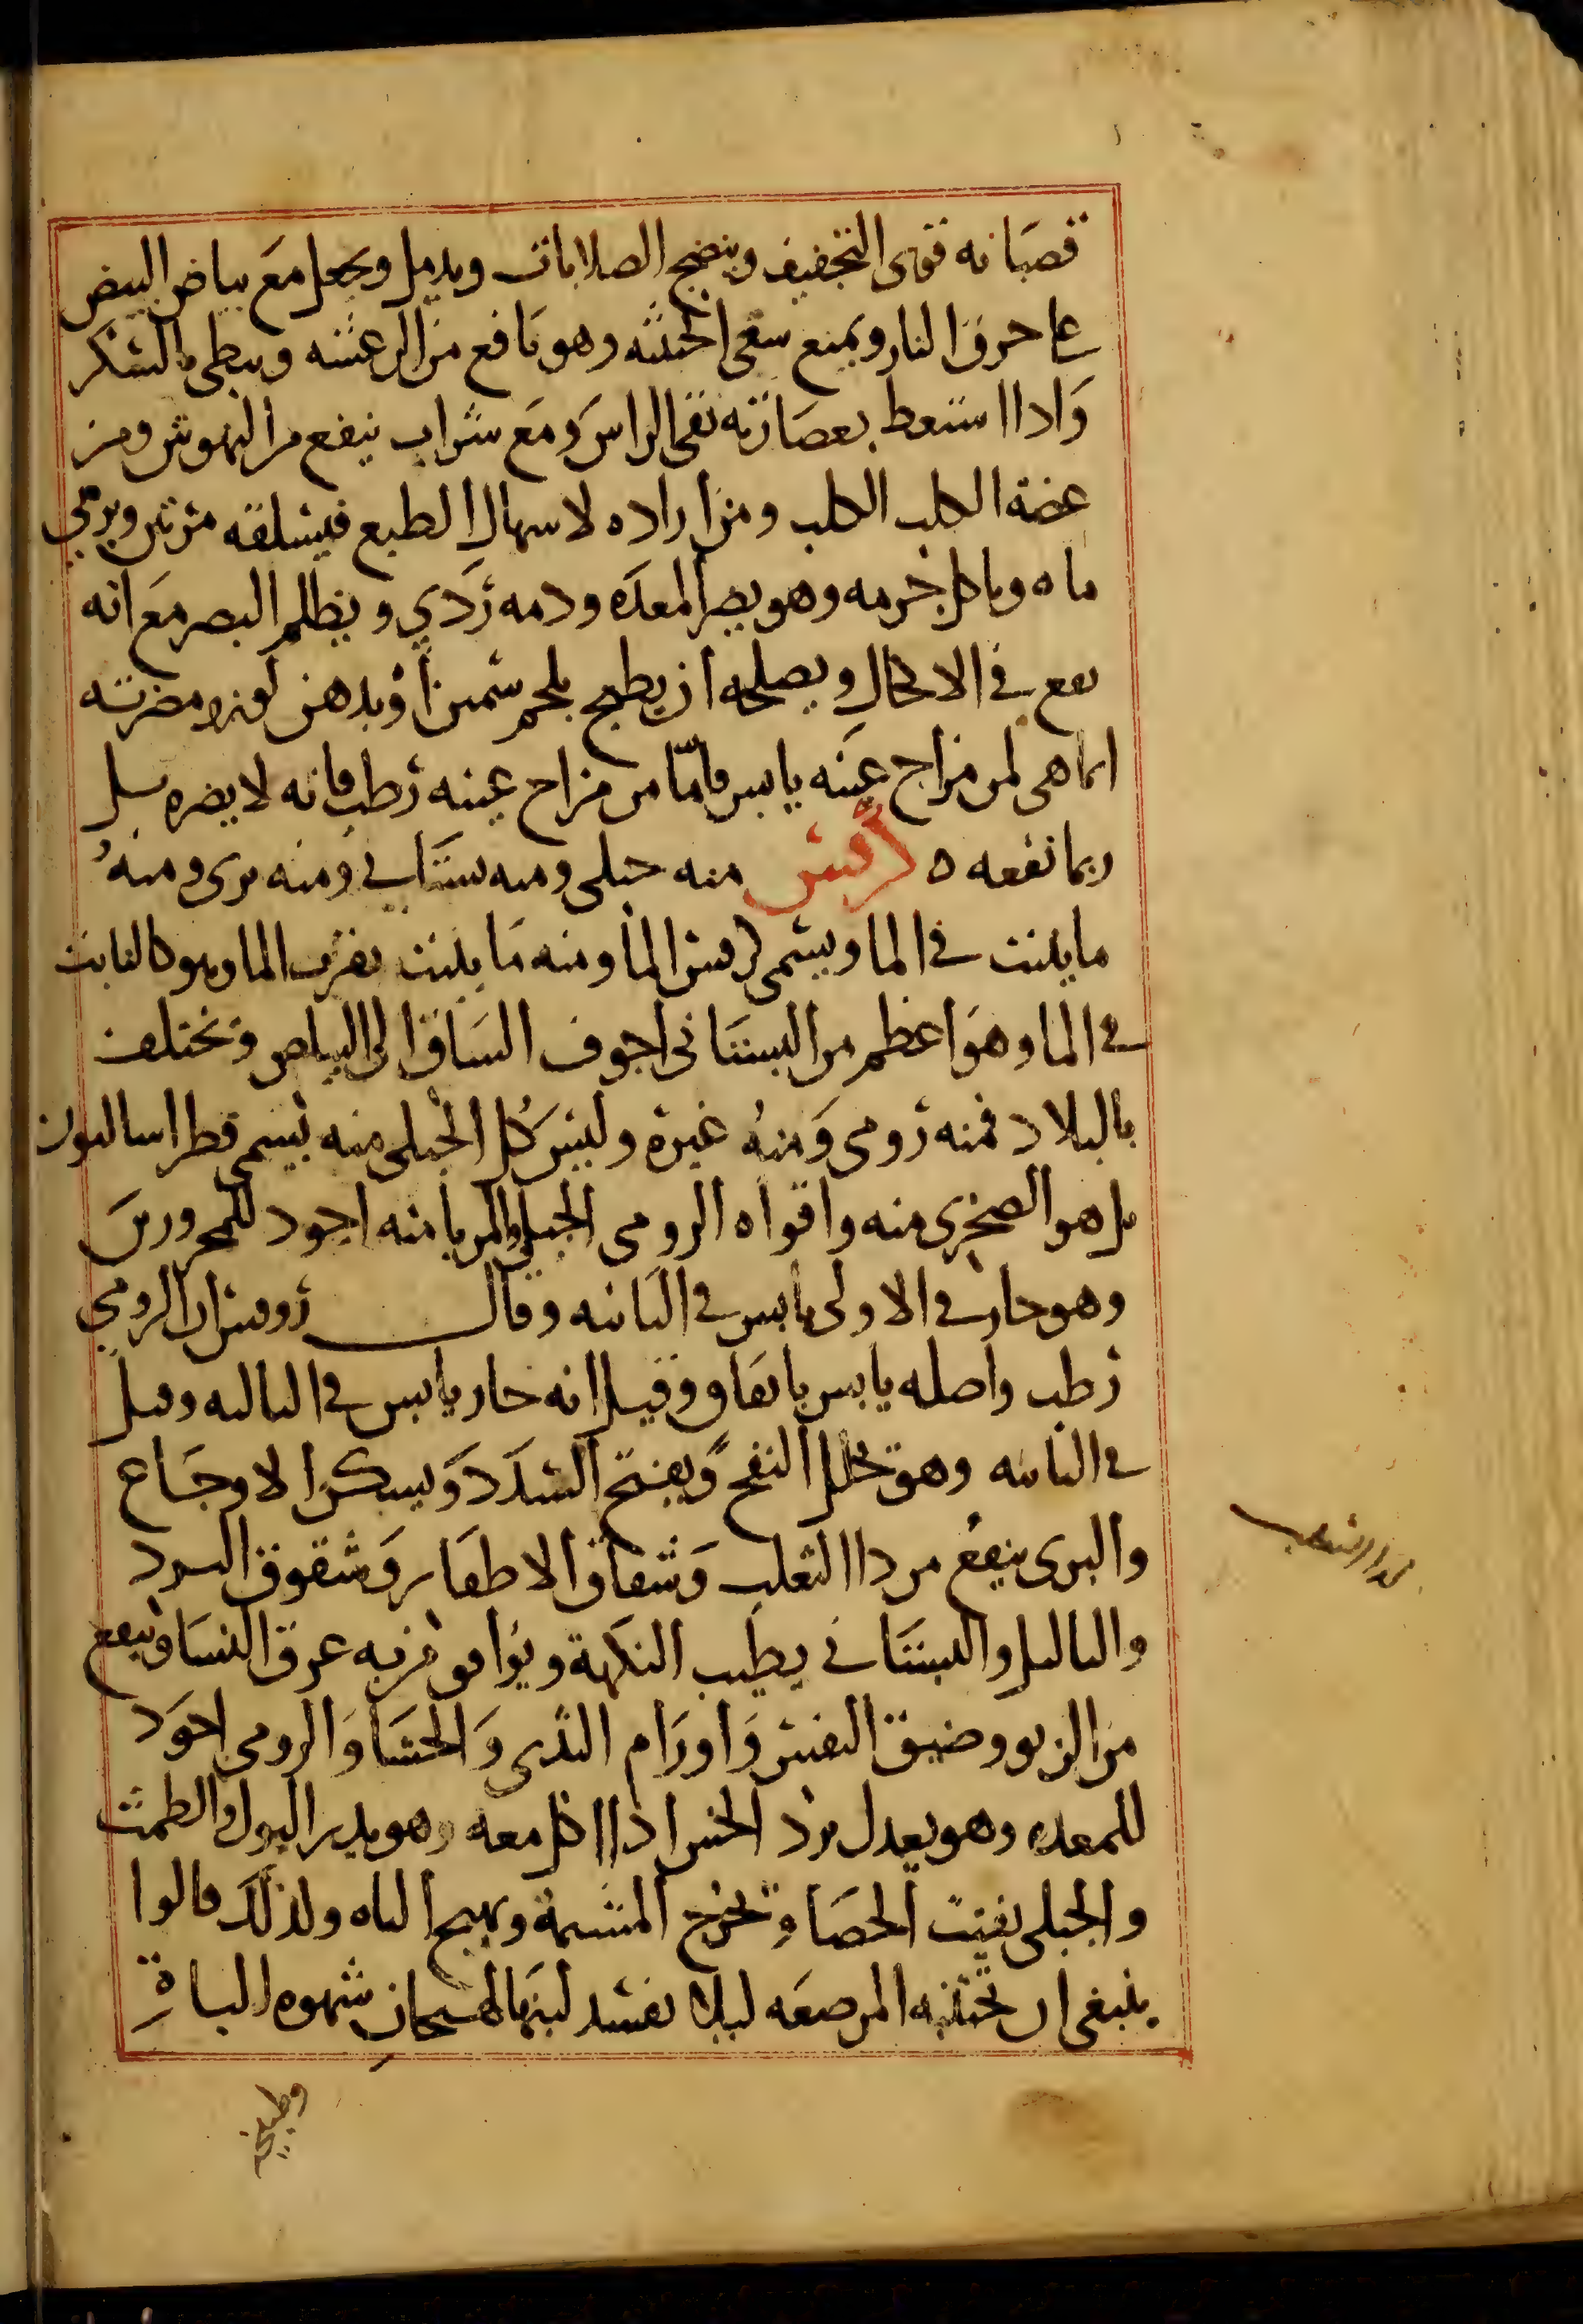 قضبانه قوى التجفيف وينضج الصلابات ويدمل ويجعل مع بياض البيض
على حرق النار ويمنع سعى الخبيثه وهو نافع من الرعشه ويبطى بالسكر
واذا استعط بعصارته نقى الراس ومع شراب ينفع من النهوش ومن
عضة الكلب الكلب ومن اراده لاسهال الطبع فيسلقه مرتين ويرمي
ماه وياكل جرمه وهو يضر المعده ودمه ردي ويظلم البصر مع انه
يقع في الاكحال ويصلحه ان يطبخ بلحم سمين او بدهن لوز ومضرته
انما هى لمن مزاج عينه يابس فامّا من مزاج عينه رطب فانه لا يضره بل
ربما نفعه ه كرفس منه جبلى ومنه بستاني ومنه برى ومنه
ما ينبت في الما ويسمى كرفس الما ومنه ما ينبت بقرب الما وهو كالنابت
في الما وهو اعظم من البستانى اجوف الساق الى البياض وتختلف
بالبلاد فمنه رومى ومنه غيره وليس كل الجبلى منه يسمى فطراساليون
بل هو الصخرى منه واقواه الرومى الجبلى والمربا منه اجود للمحرورين
وهو حار في الاولى يابس في الثانيه وقال روفس ان الرومي
رطب واصله يابس باتفاق وقيل انه حار يابس في الثالثه وقيل
في الثانيه وهو تحلل النفخ ويفتح السدد ويسكن الاوجاع
والبرى ينفع من دا الثعلب وشقاق الاظفار وشقوق البرد
والثاليل والبستاني يطيب النكهة ويوافق مربه عرق النسا وينفع
من الربو وضيق النفس واورام الثدى والحشا والرومى اجود
للمعده وهو يعدل برد الخس اذا اكل معه وهو يدر البول والطمث
والجبلى يفتت الحصاة تخرج المشيمة ويهيج الباه ولذلك قالوا
ينبغى ان تجتنبه المرضعه ليلا يفسد لبنها لهيجان شهوه الباة
من دا الثعلب
وطبيخه